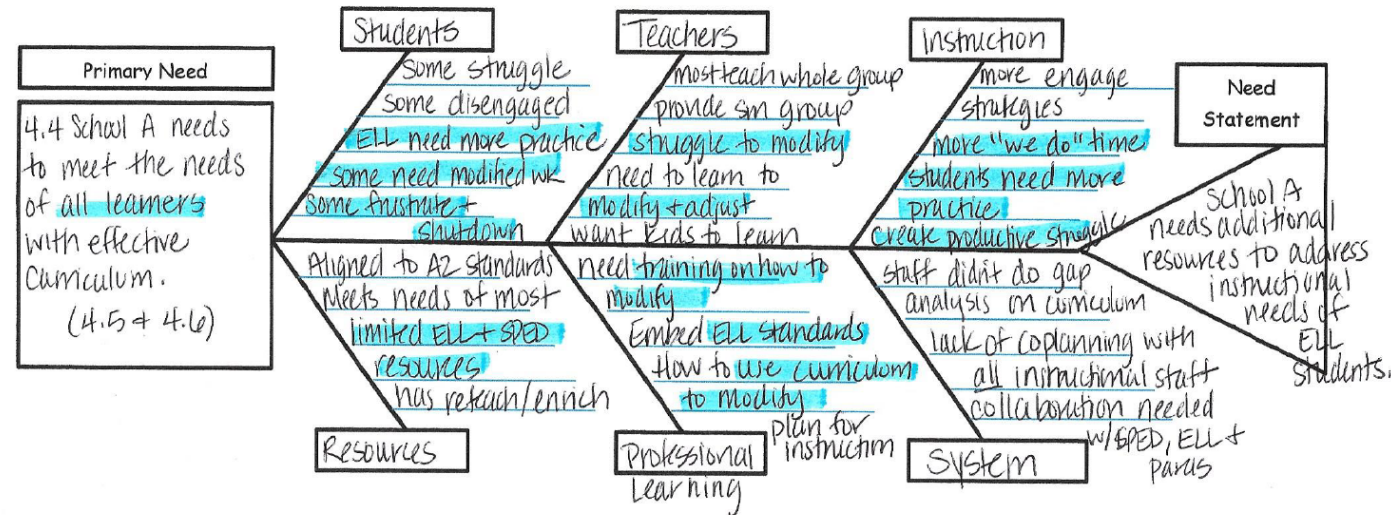 Primary Need
4.4 School A needs
to meet the needs
of all learners
with effective
Curriculum.
(4.5 + 4.6)
Students
Some struggle
Some disengaged
ELL need more practice
some need modified wk
Some frustrate +
shutdown
Teachers
most teach whole group
provide sm group
struggle to modify
need to learn to
modify + adjust
want kids to learn
Instruction
more engage
strategies
more "we do" time
students need more
practice
create productive struggle
Need
Statement
School A
needs additional
resources to address
instructional
needs of
ELL
students.
Aligned to AZ standards
Meets needs of most
limited ELL + SPED
resources
has reteach/enrich
Resources
need training on how to
modify
Embed ELL standards
How to use curriculum
to modify
plan for
instruction
Professional
Learning
staff didn't do gap
analysis on curriculum
lack of coplanning with
all instructional staff
collaboration needed
w/ SPED, ELL +
paras
System